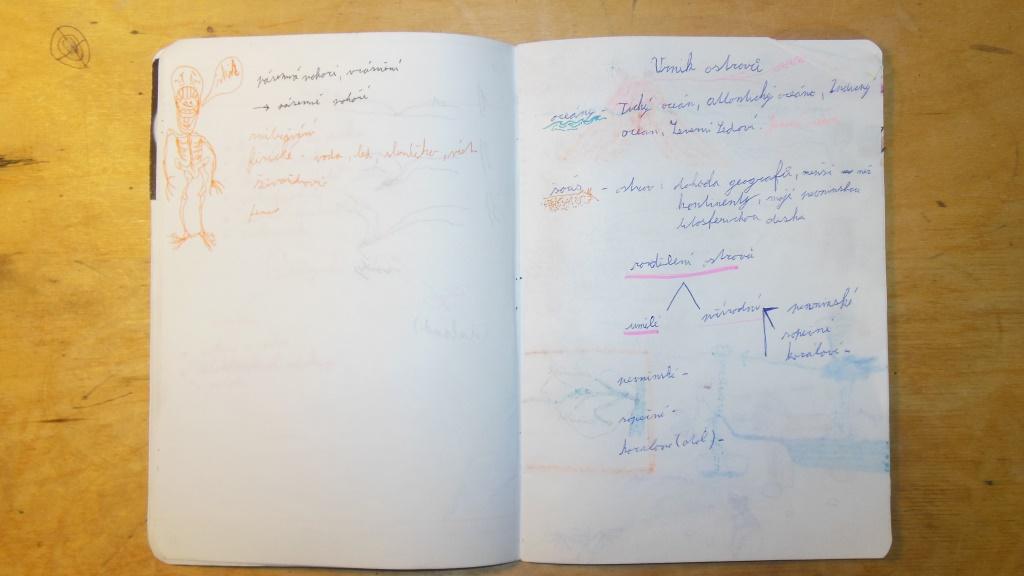 pásemná pohoří, vrásnění
→ pásemné pohoří
fyzické - voda, led, sluníčko, vítr
živočichové
Vznik ostrovů
oceány - Tichý oceán, Atlantický oceáno, Indický
ocean, Severní Ledoví.
souš - ostrov: dohoda geografů, menší než
kontinenty, mají pevninskou
litosferickou desku
rozdělení ostrovů
umělé
přírodní
pevninské
sopečné
korálové -
pevninské -
sopečné -
korálové (atol) -